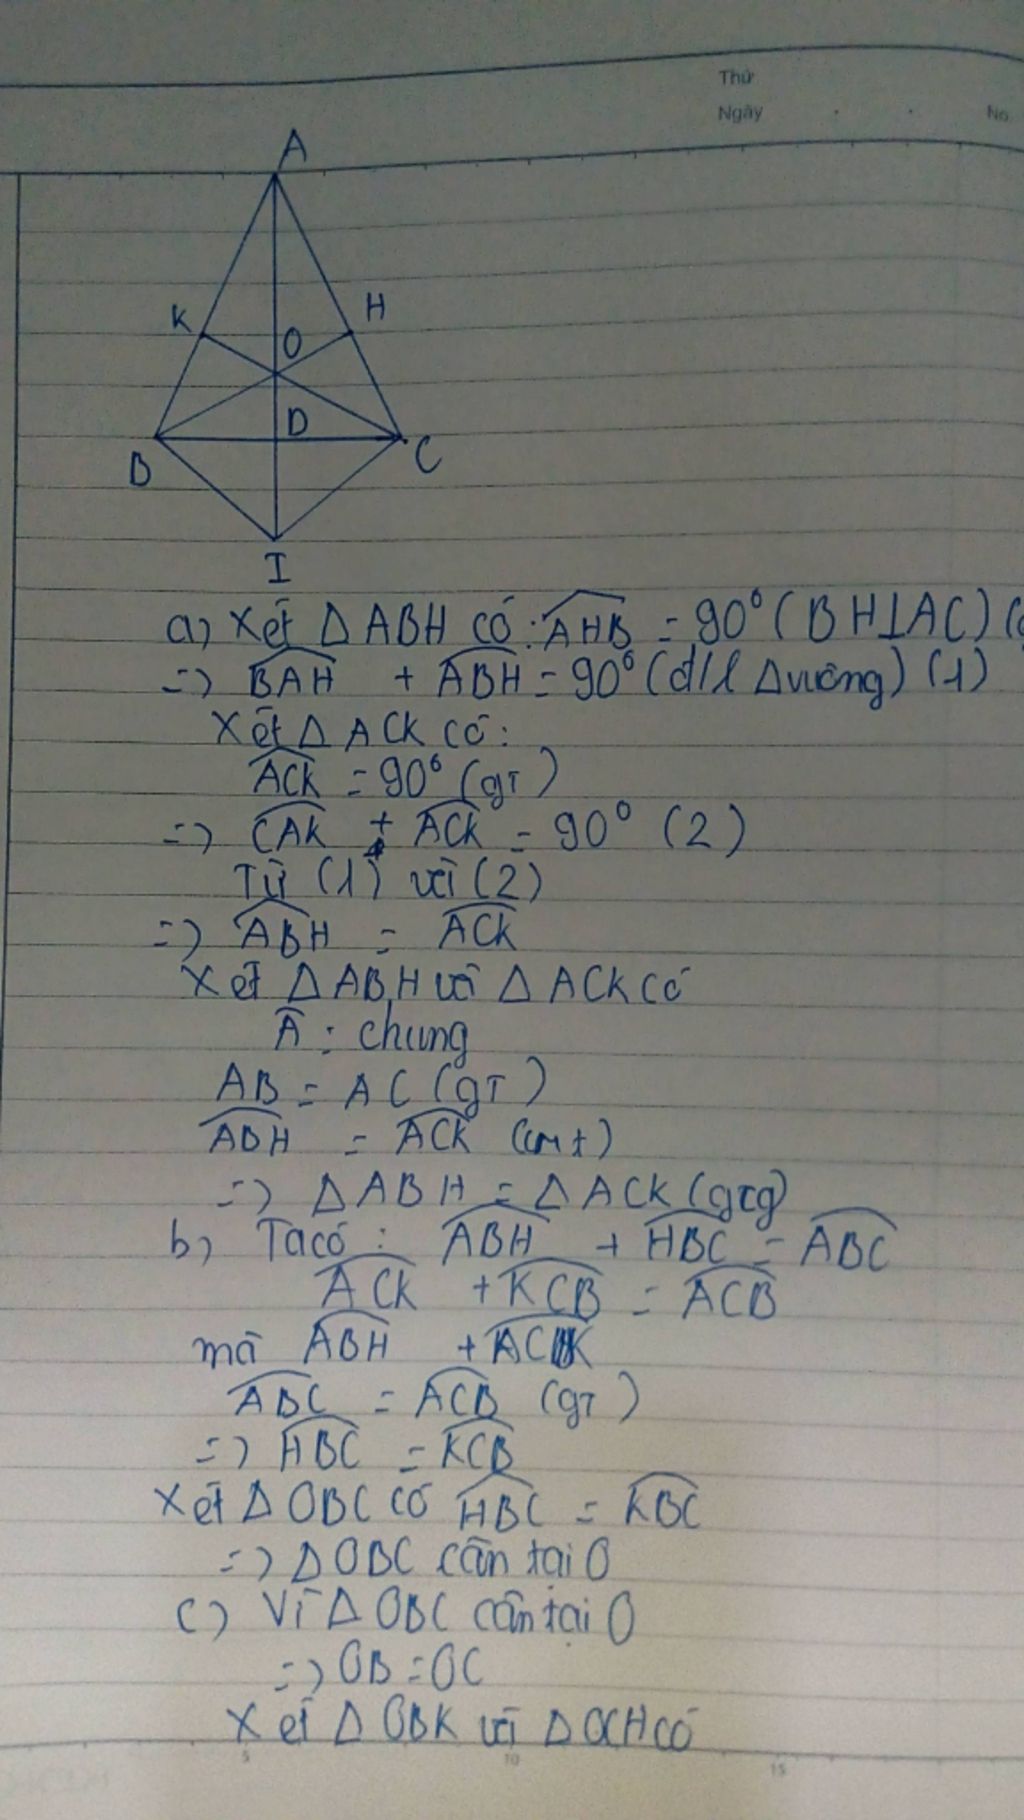 Thứ
Ngày . . No
A
K H
O
D
B C
I
a) Xét Δ ABH có: AHB = 90° (BH⊥AC)
=> BAH + ABH = 90° (đ/l Δvuông) (1)
Xét Δ ACK có:
ACK = 90° (gT)
=> CAK + ACK = 90° (2)
Từ (1) và (2)
=> ABH = ACK
Xét Δ ABH và Δ ACK có
Â : chung
AB = AC (gT)
ABH = ACK (cmt)
=> Δ ABH = Δ ACK (gcg)
b) Ta có : ABH + HBC = ABC
ACK + KCB = ACB
mà ABH + ACK
ABC = ACB (gT)
=> HBC = KCB
Xét Δ OBC có HBC = KBC
=> Δ OBC cân tại O
c) Vì Δ OBC cân tại O
=> OB = OC
Xét Δ OBK và Δ OCH có
5 10 15